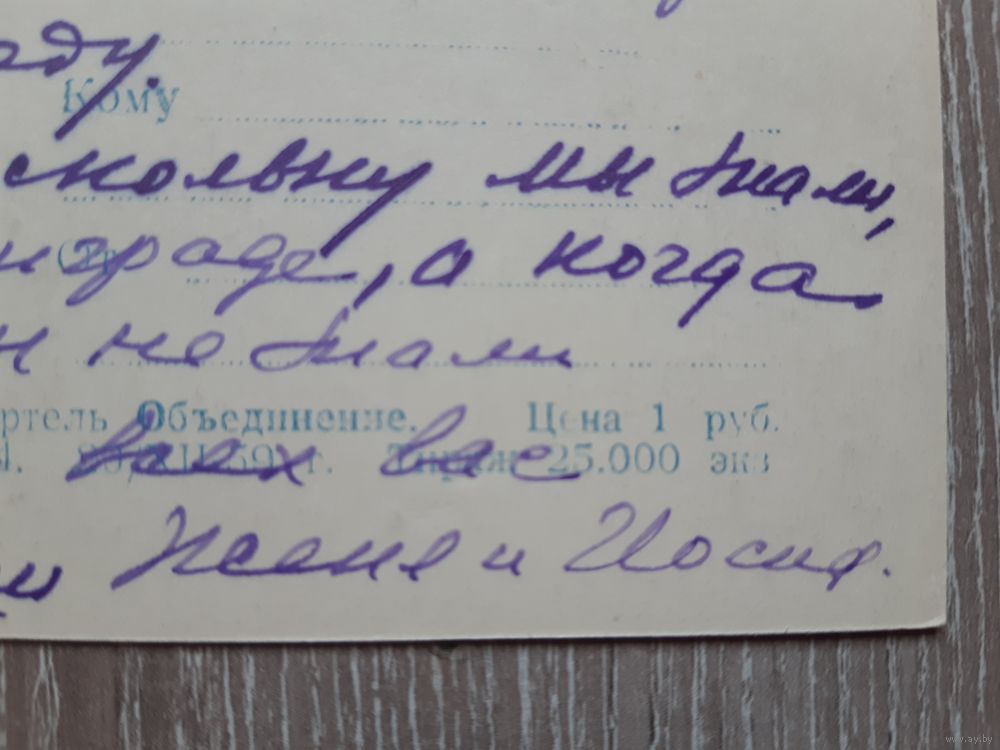 ду.
Кому
скольку мы знали,
нграде, а когда
н не знали
ртель Объединение. Цена 1 руб.
XII 59 г. Тираж 25.000 экз
всех вас
Женя и Иосиф.
www.ay.by